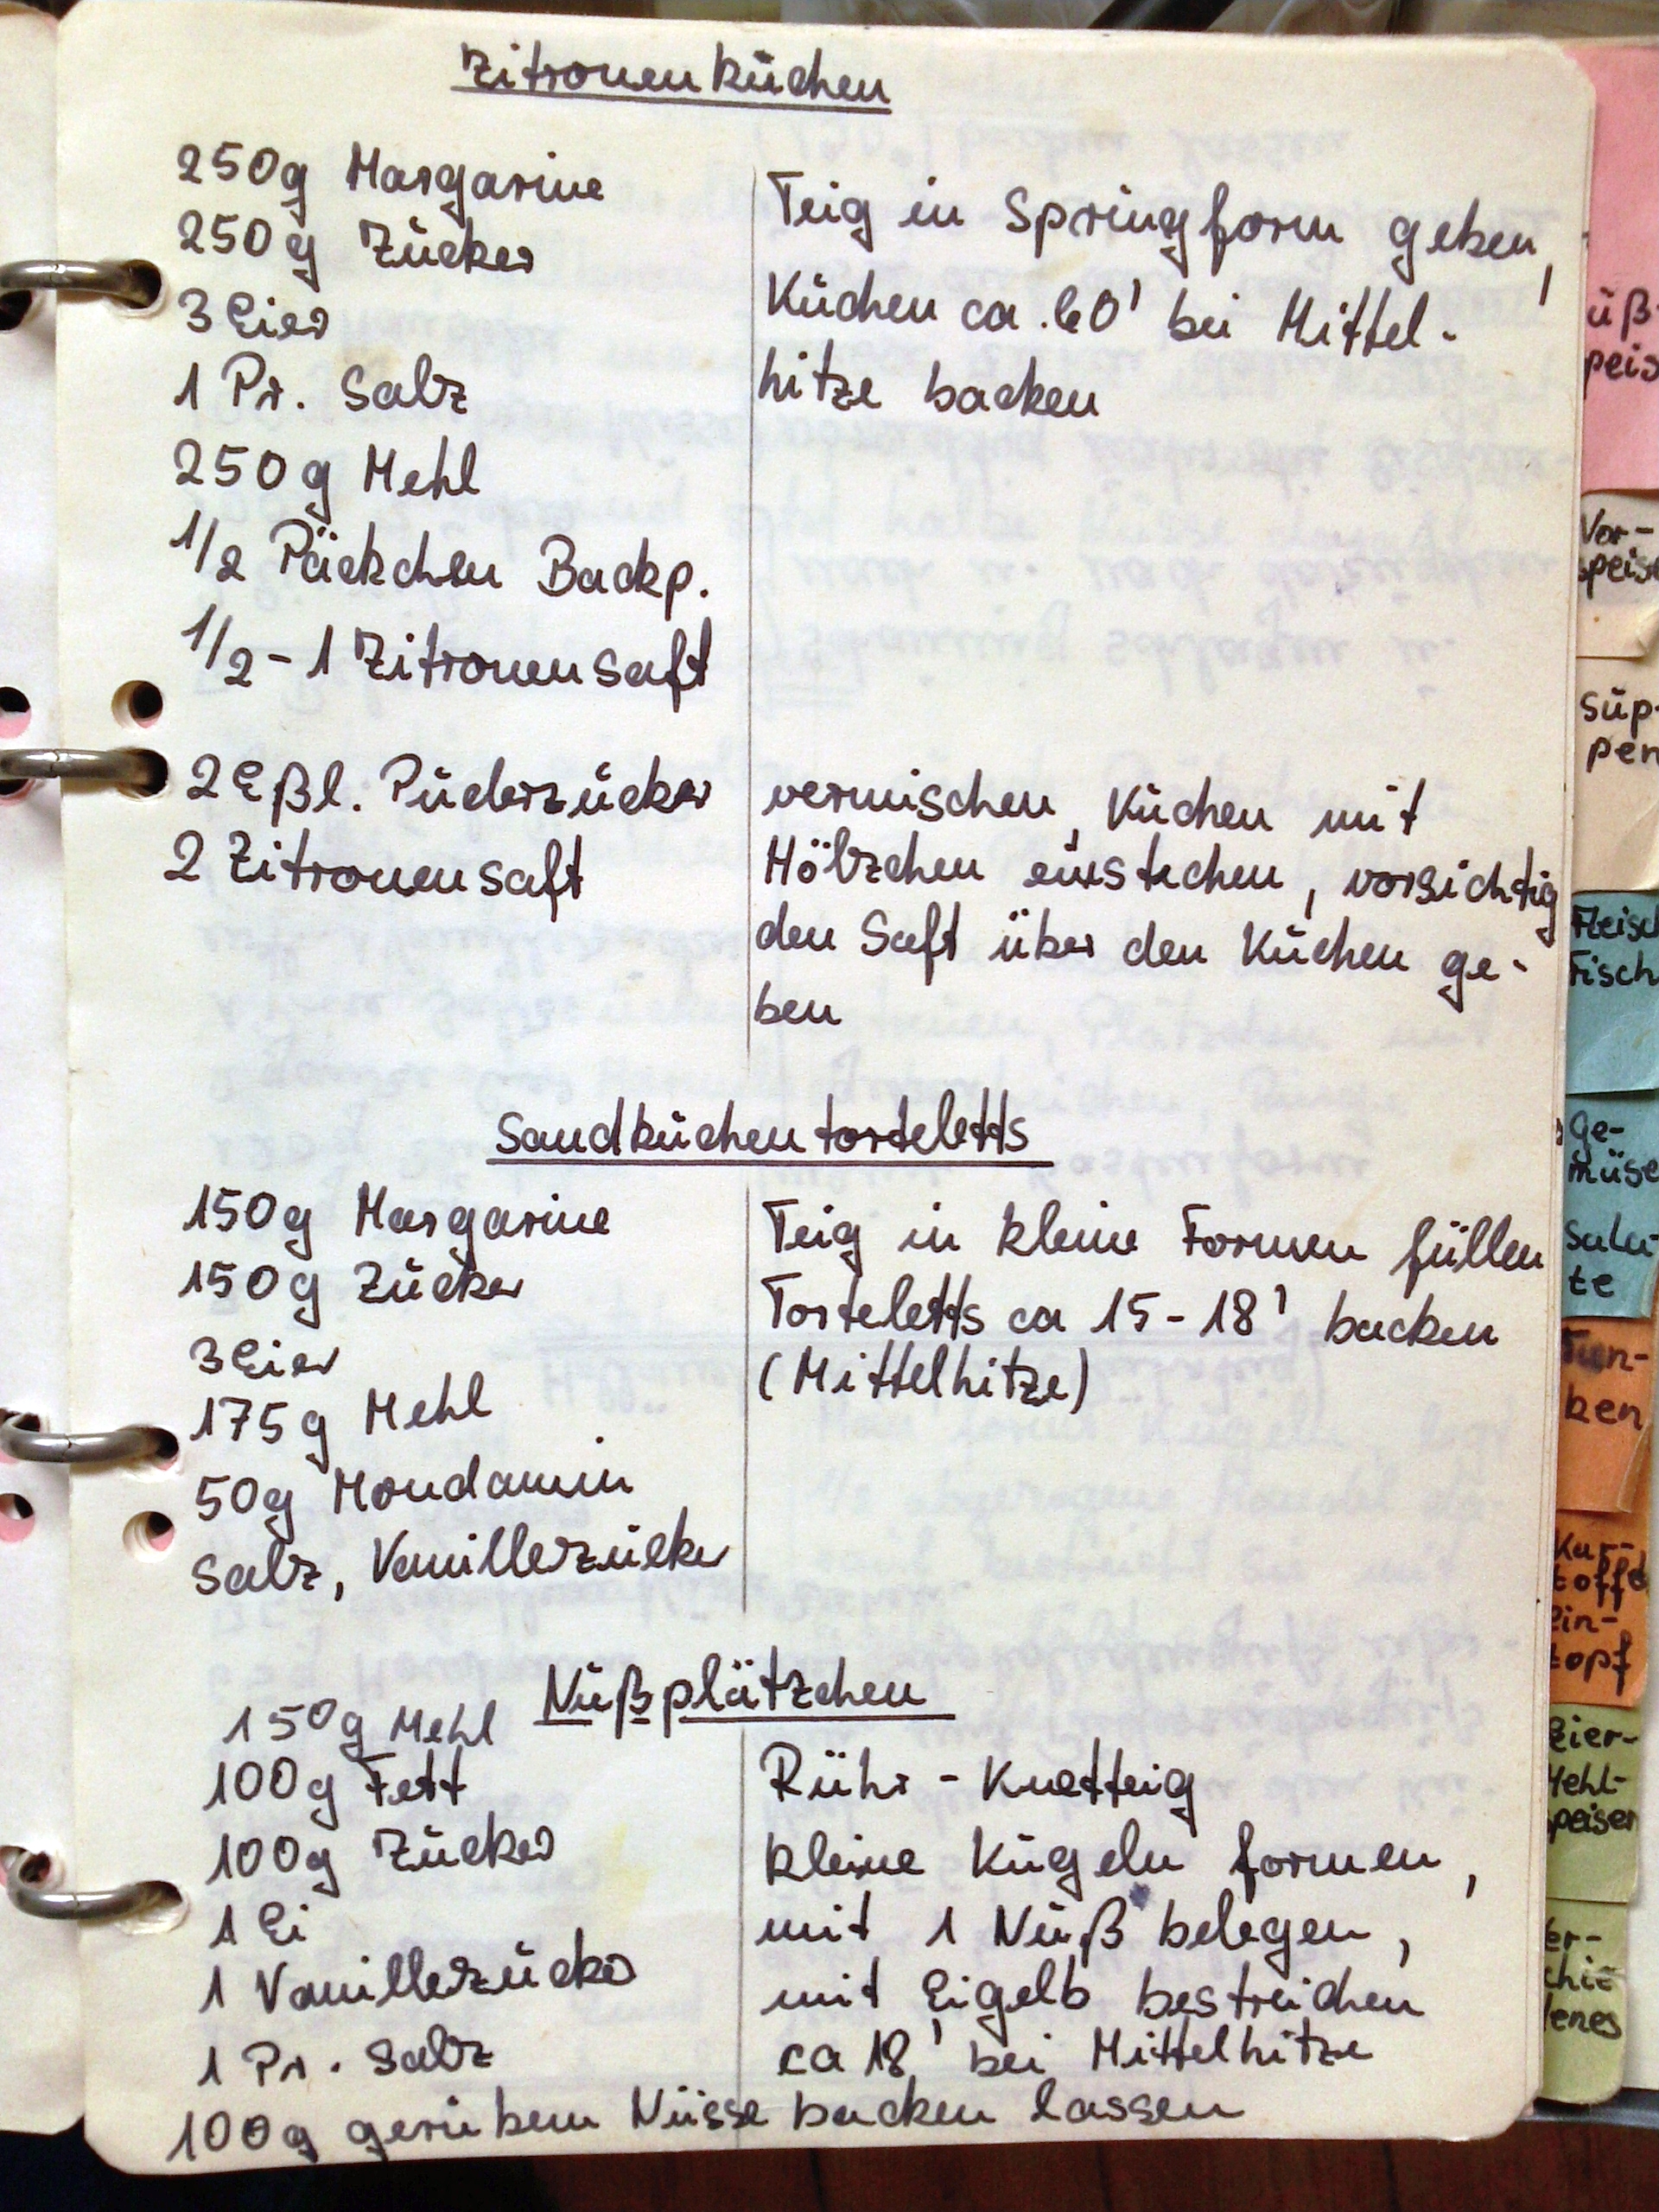 Zitronenkuchen
250g Margarine
250g Zucker
3 Eier
1 Pr. Salz
250g Mehl
1/2 Päckchen Backp.
1/2 - 1 Zitronensaft
Teig in Springform geben,
Kuchen ca. 60' bei Mittel-
hitze backen
2 Eßl. Puderzucker
2 Zitronensaft
vermischen, Kuchen mit
Hölzchen einstechen, vorsichtig
den Saft über den Kuchen ge-
ben
Sandkuchentorteletts
150g Margarine
150g Zucker
3 Eier
175g Mehl
50g Mondamin
Salz, Vanillezucker
Teig in kleine Formen füllen
Torteletts ca 15 - 18' backen
(Mittelhitze)
Nußplätzchen
150g Mehl
100g Fett
100g Zucker
1 Ei
1 Vanillezucker
1 Pr. Salz
100g geriebene Nüsse
Rühr - Knetteig
kleine Kugeln formen,
mit 1 Nuß belegen,
mit Eigelb bestreichen
ca 18' bei Mittelhitze
backen lassen
üß-
peis
Vor-
speise
Sup-
pen
Fleisch
Fisch
Ge-
müse
Sala-
te
Tun-
ken
Kar-
toffel
Ein-
topf
Eier-
Mehl-
speisen
er-
chie
denes